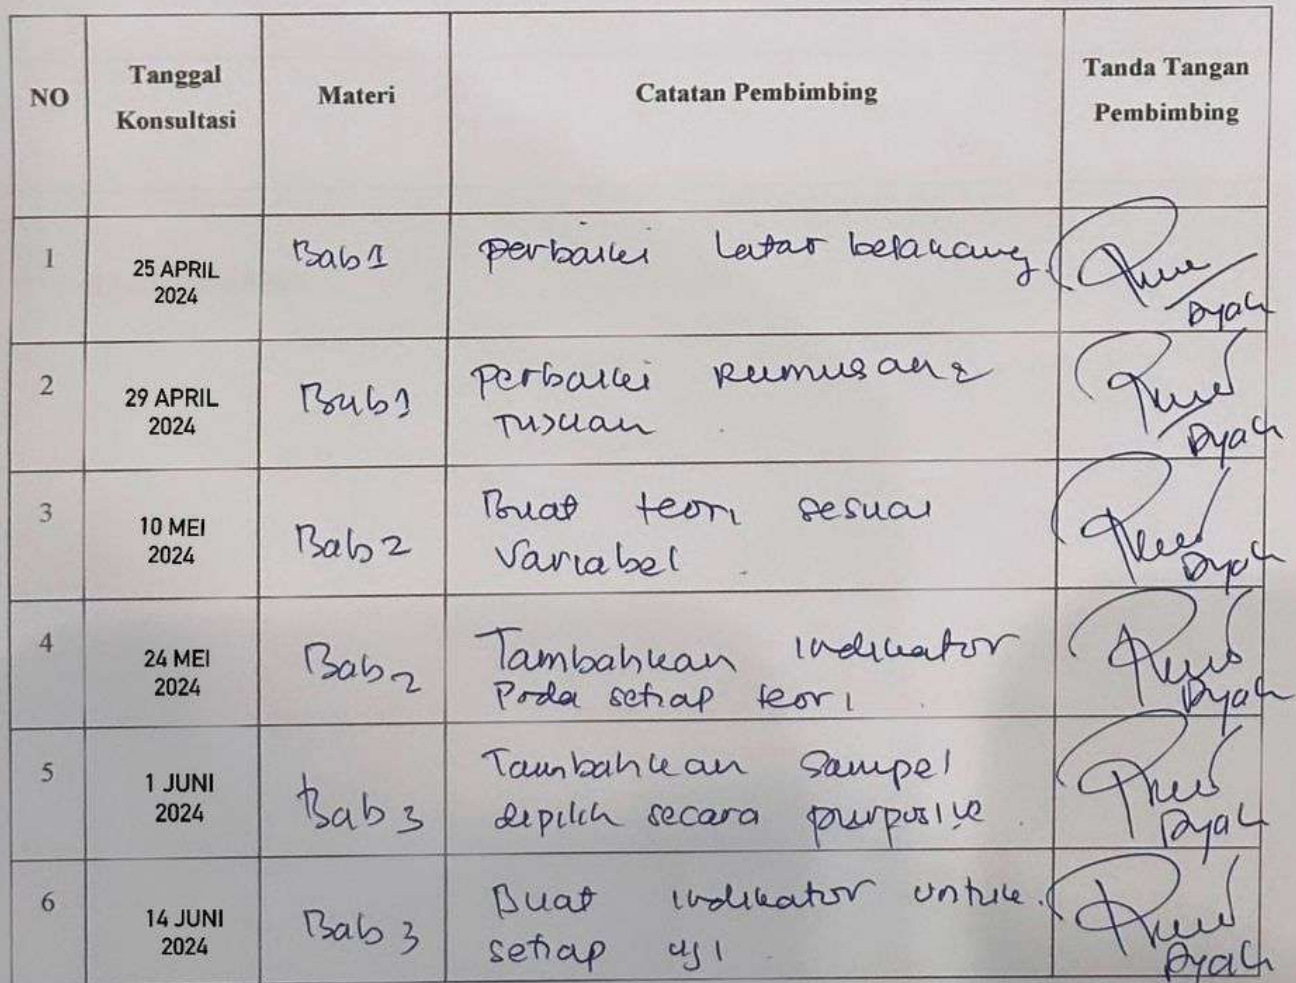 NO Tanggal Konsultasi Materi Catatan Pembimbing Tanda Tangan Pembimbing
1 25 APRIL 2024 Bab 1 perbaiki latar belakang. Dyah
2 29 APRIL 2024 Bab 1 perbaiki rumusan &
tujuan Dyah
3 10 MEI 2024 Bab 2 Buat teori sesuai
variabel Dyah
4 24 MEI 2024 Bab 2 Tambahkan indikator
Pada setiap teori Dyah
5 1 JUNI 2024 Bab 3 Tambahkan Sampel
dipilih secara purposive Dyah
6 14 JUNI 2024 Bab 3 Buat indikator untuk
setiap uji Dyah